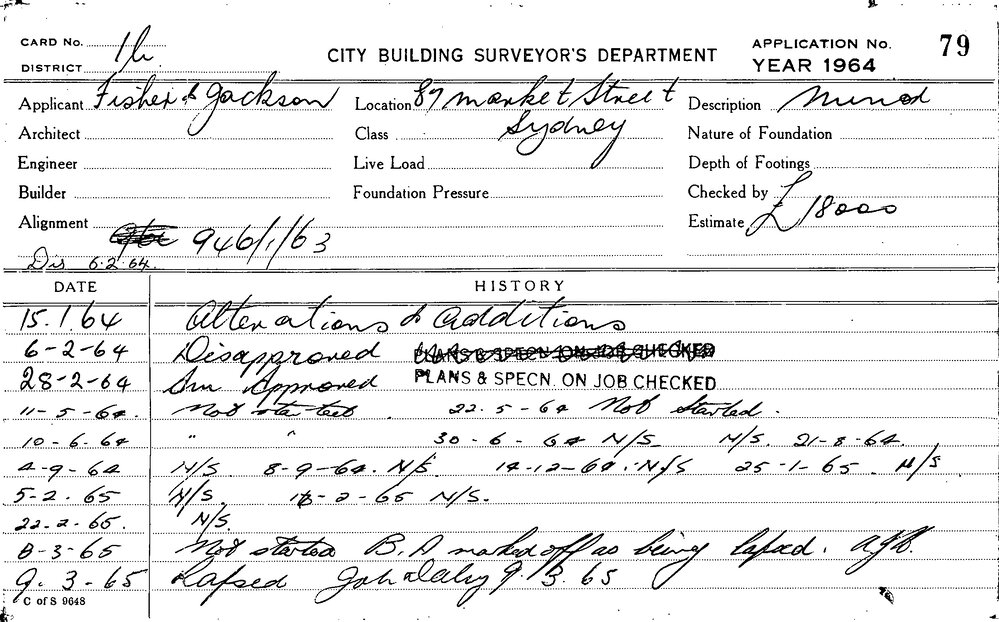 CARD No. 1h. CITY BUILDING SURVEYOR'S DEPARTMENT APPLICATION No. 79
DISTRICT YEAR 1964
Applicant Fisher & Jackson Location 89 Market Street Description Minor
Architect Class Sydney Nature of Foundation
Engineer Live Load Depth of Footings
Builder Foundation Pressure Checked by
Alignment Estimate £18000
946/1/63
Dis. 6.2.64.
DATE HISTORY
15.1.64 Alterations & additions
6-2-64 Disapproved
28-2-64 Approved PLANS & SPECN. ON JOB CHECKED
11-5-64 Not started. 22.5-64 Not Started.
10-6-64 " " 30-6-64 N/S N/S. 21-8-64.
4-9-64 N/S 8-9-64. N/S. 14-12-64. N/S 25-1-65. N/S
5-2.65 N/S. 2-65 N/S.
22-2-65. N/S.
8-3-65 Not started B.A marked off as being lapsed.
9.3-65 Lapsed 9.3.65
C of S 9648